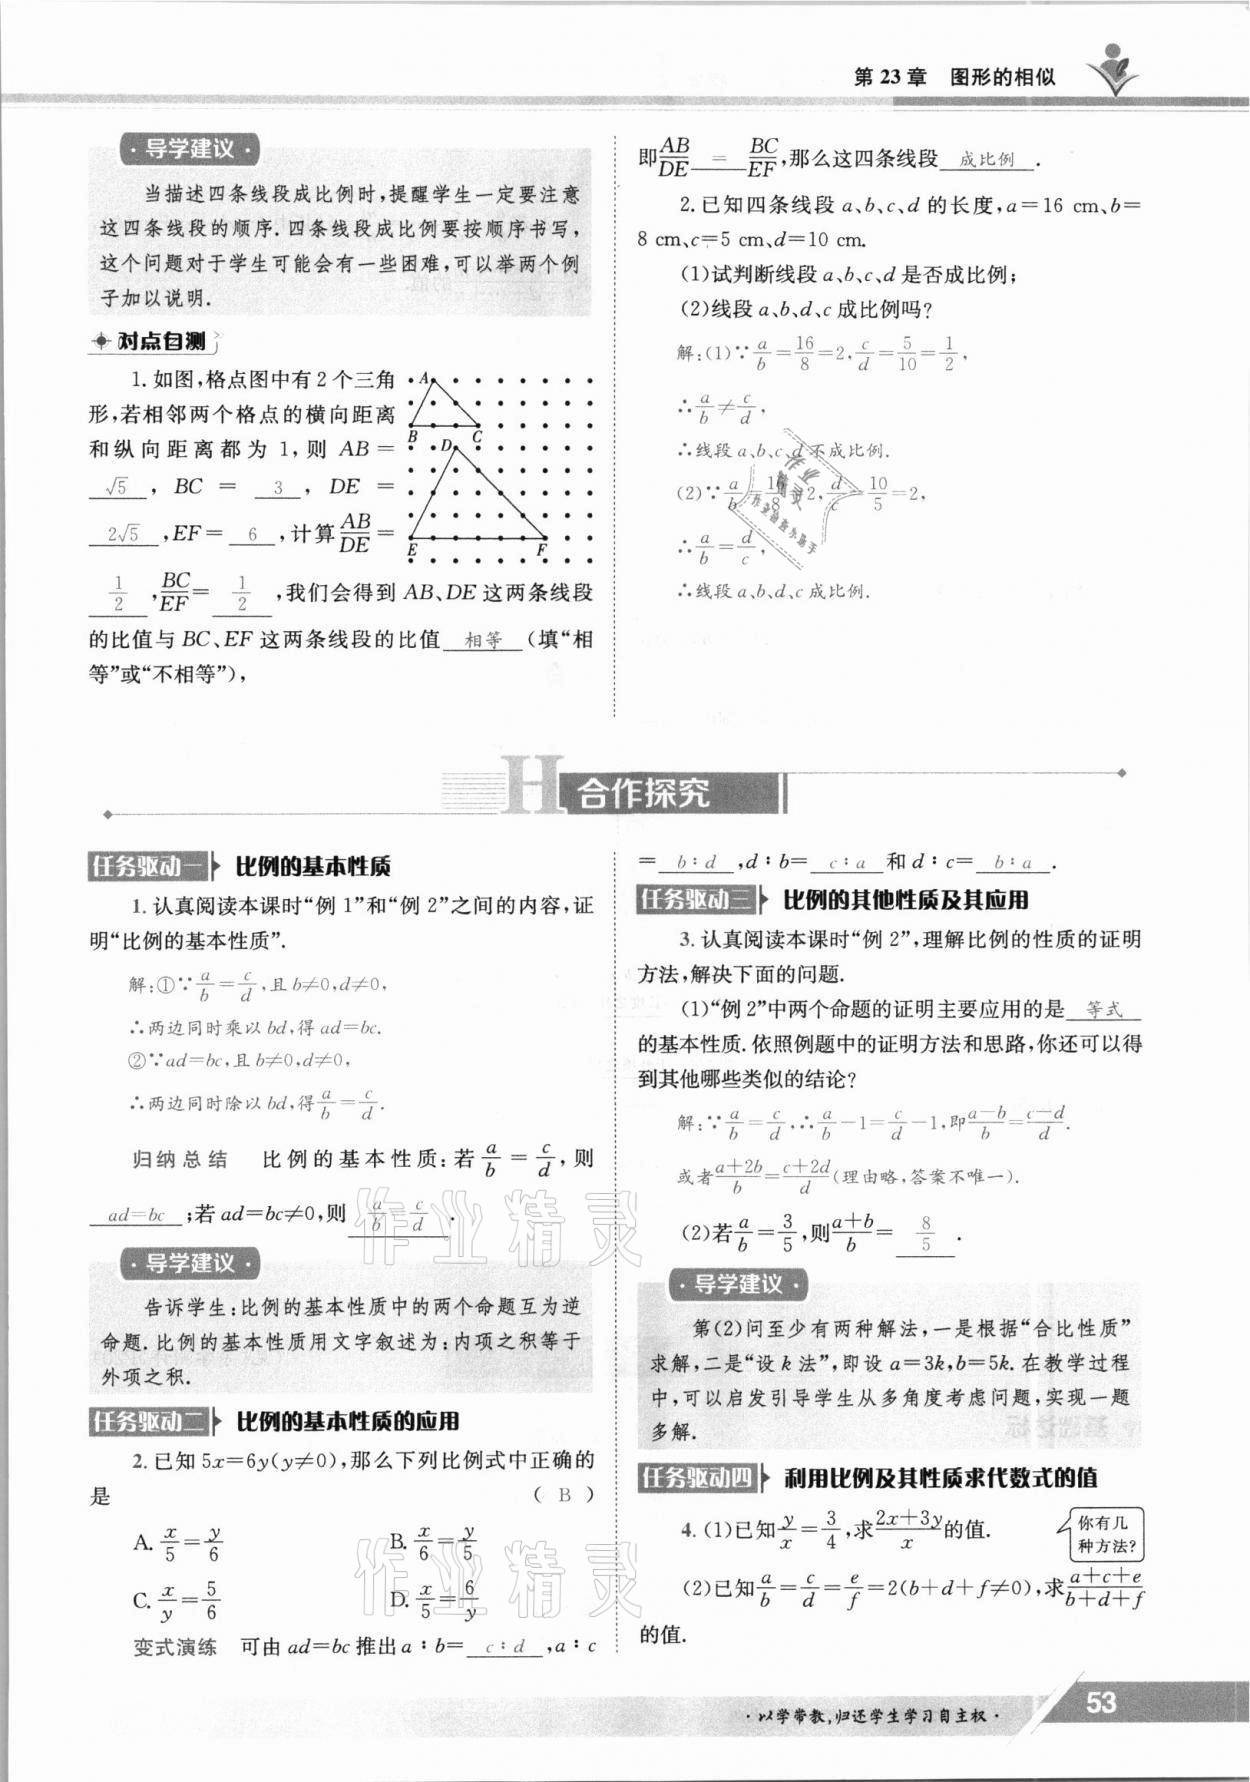 第 23 章　图形的相似
· 导学建议 ·
当描述四条线段成比例时,提醒学生一定要注意
这四条线段的顺序.四条线段成比例要按顺序书写,
这个问题对于学生可能会有一些困难,可以举两个例
子加以说明.
对点自测
1.如图,格点图中有 2 个三角
形,若相邻两个格点的横向距离
和纵向距离都为 1,则 AB=
√5 , BC = 3 , DE =
2√5 ,EF= 6 ,计算AB/DE=
1/2 ,BC/EF= 1/2 ,我们会得到 AB、DE 这两条线段
的比值与 BC、EF 这两条线段的比值 相等 (填“相
等”或“不相等”),
A
B
C
D
E
F
即AB/DE = BC/EF,那么这四条线段 成比例 .
2.已知四条线段 a、b、c、d 的长度,a=16 cm、b=
8 cm、c=5 cm、d=10 cm.
(1)试判断线段 a、b、c、d 是否成比例;
(2)线段 a、b、d、c 成比例吗?
解:(1)∵a/b=16/8=2,c/d=5/10=1/2,
∴a/b≠c/d,
∴线段 a、b、c、d 不成比例.
(2)∵a/b=16/8=2,d/c=10/5=2,
∴a/b=d/c,
∴线段 a、b、d、c 成比例.
H 合作探究
任务驱动一 比例的基本性质
1.认真阅读本课时“例 1”和“例 2”之间的内容,证
明“比例的基本性质”.
解:①∵a/b=c/d,且 b≠0,d≠0,
∴两边同时乘以 bd,得 ad=bc.
②∵ad=bc,且 b≠0,d≠0,
∴两边同时除以 bd,得a/b=c/d.
归纳总结　比例的基本性质:若a/b=c/d,则
ad=bc ;若 ad=bc≠0,则 a/b=c/d .
· 导学建议 ·
告诉学生:比例的基本性质中的两个命题互为逆
命题.比例的基本性质用文字叙述为:内项之积等于
外项之积.
任务驱动二 比例的基本性质的应用
2.已知 5x=6y(y≠0),那么下列比例式中正确的
是 ( B )
A. x/5=y/6　B. x/6=y/5
C. x/y=5/6　D. x/5=6/y
变式演练　可由 ad=bc 推出 a∶b= c∶d ,a∶c
= b∶d ,d∶b= c∶a 和 d∶c= b∶a .
任务驱动三 比例的其他性质及其应用
3.认真阅读本课时“例 2”,理解比例的性质的证明
方法,解决下面的问题.
(1)“例 2”中两个命题的证明主要应用的是 等式
的基本性质.依照例题中的证明方法和思路,你还可以得
到其他哪些类似的结论?
解:∵a/b=c/d,∴a/b-1=c/d-1,即(a-b)/b=(c-d)/d.
或者(a+2b)/b=(c+2d)/d(理由略,答案不唯一).
(2)若a/b=3/5,则(a+b)/b= 8/5 .
· 导学建议 ·
第(2)问至少有两种解法,一是根据“合比性质”
求解,二是“设 k 法”,即设 a=3k,b=5k.在教学过程
中,可以启发引导学生从多角度考虑问题,实现一题
多解.
任务驱动四 利用比例及其性质求代数式的值
4.(1)已知y/x=3/4,求(2x+3y)/x的值.
你有几
种方法?
(2)已知a/b=c/d=e/f=2(b+d+f≠0),求(a+c+e)/(b+d+f)
的值.
作业精灵
作业精灵
· 以学带教,归还学生学习自主权 ·
53